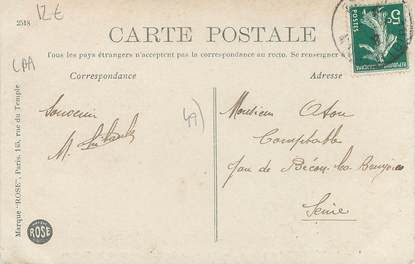 12€
2518
CARTE POSTALE
5c
POSTES
Tous les pays étrangers n'acceptent pas la correspondance au recto. Se renseigner
CPA
Correspondance
Adresse
Marque "ROSE", Paris, 145, rue du Temple
ROSE
Souvenir
M.
49)
Monsieur
Comptable
de Bécon-les-Bruyères
Seine